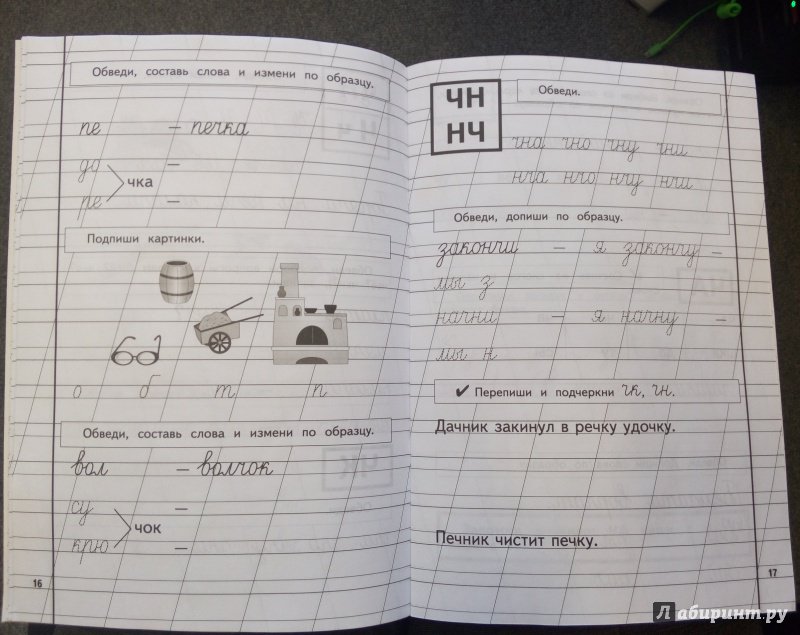 Обведи, составь слова и измени по образцу.
пе — печка
до
чка —
ре —
Подпиши картинки.
о б т п
Обведи, составь слова и измени по образцу.
вол — волчок
су —
чок
крю —
16
ЧН
НЧ
Обведи.
чна чно чну чни
нча нчо нчу нчи
Обведи, допиши по образцу.
закончи — я закончу —
мы з
начни — я начну —
мы н
✔ Перепиши и подчеркни чк, чн.
Дачник закинул в речку удочку.
Печник чистит печку.
17
Лабиринт.ру